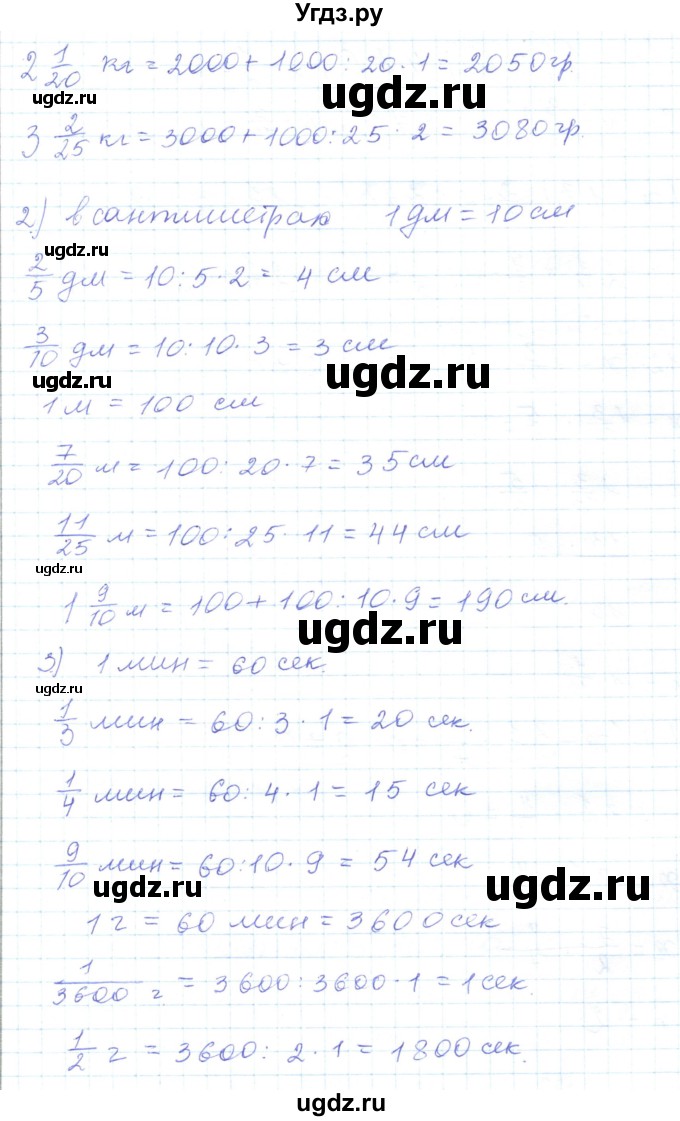 Угдз.ру
2 1/20 кг = 2000 + 1000 : 20 · 1 = 2050 гр.
ugdz.ru
ugdz.ru
3 2/25 кг = 3000 + 1000 : 25 · 2 = 3080 гр.
2) в сантиметрах 1 дм = 10 см
ugdz.ru
2/5 дм = 10 : 5 · 2 = 4 см
3/10 дм = 10 : 10 · 3 = 3 см
ugdz.ru
ugdz.ru
1 м = 100 см
7/20 м = 100 : 20 · 7 = 35 см
11/25 м = 100 : 25 · 11 = 44 см
ugdz.ru
1 9/10 м = 100 + 100 : 10 · 9 = 190 см.
ugdz.ru
3) 1 мин = 60 сек.
ugdz.ru
1/3 мин = 60 : 3 · 1 = 20 сек.
1/4 мин = 60 : 4 · 1 = 15 сек
9/10 мин = 60 : 10 · 9 = 54 сек
ugdz.ru
ugdz.ru
1 г = 60 мин = 3600 сек
1/3600 г = 3600 : 3600 · 1 = 1 сек.
1/2 г = 3600 : 2 · 1 = 1800 сек.
ugdz.ru